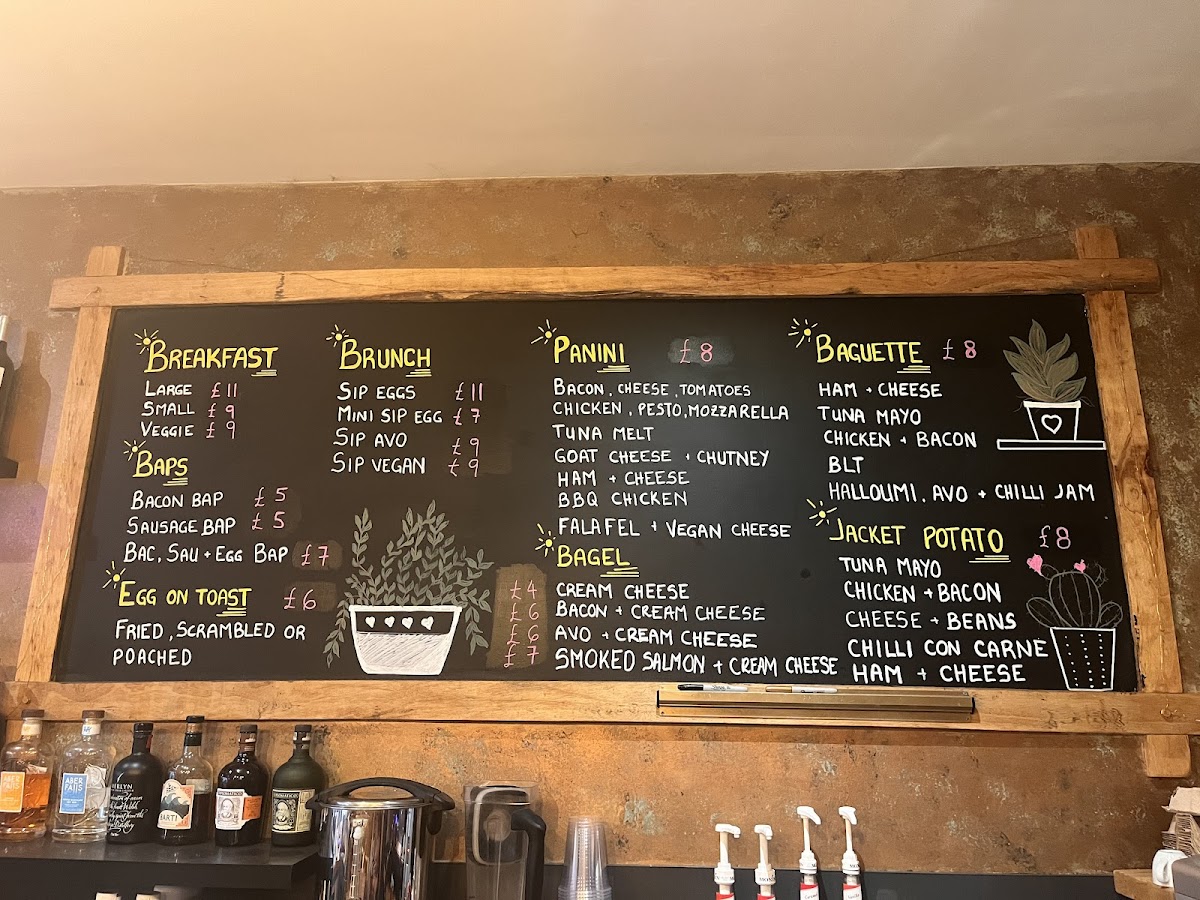 BREAKFAST
LARGE £11
SMALL £9
VEGGIE £9
BAPS
BACON BAP £5
SAUSAGE BAP £5
BAC, SAU + EGG BAP £7
EGG ON TOAST £6
FRIED, SCRAMBLED OR
POACHED
BRUNCH
SIP EGGS £11
MINI SIP EGG £7
SIP AVO £9
SIP VEGAN £9
PANINI £8
BACON, CHEESE, TOMATOES
CHICKEN, PESTO, MOZZARELLA
TUNA MELT
GOAT CHEESE + CHUTNEY
HAM + CHEESE
BBQ CHICKEN
FALAFEL + VEGAN CHEESE
BAGEL
£4 CREAM CHEESE
£6 BACON + CREAM CHEESE
£6 AVO + CREAM CHEESE
£7 SMOKED SALMON + CREAM CHEESE
BAGUETTE £8
HAM + CHEESE
TUNA MAYO
CHICKEN + BACON
BLT
HALLOUMI, AVO + CHILLI JAM
JACKET POTATO £8
TUNA MAYO
CHICKEN + BACON
CHEESE + BEANS
CHILLI CON CARNE
HAM + CHEESE
ABER
FALLS
ABER
FALLS